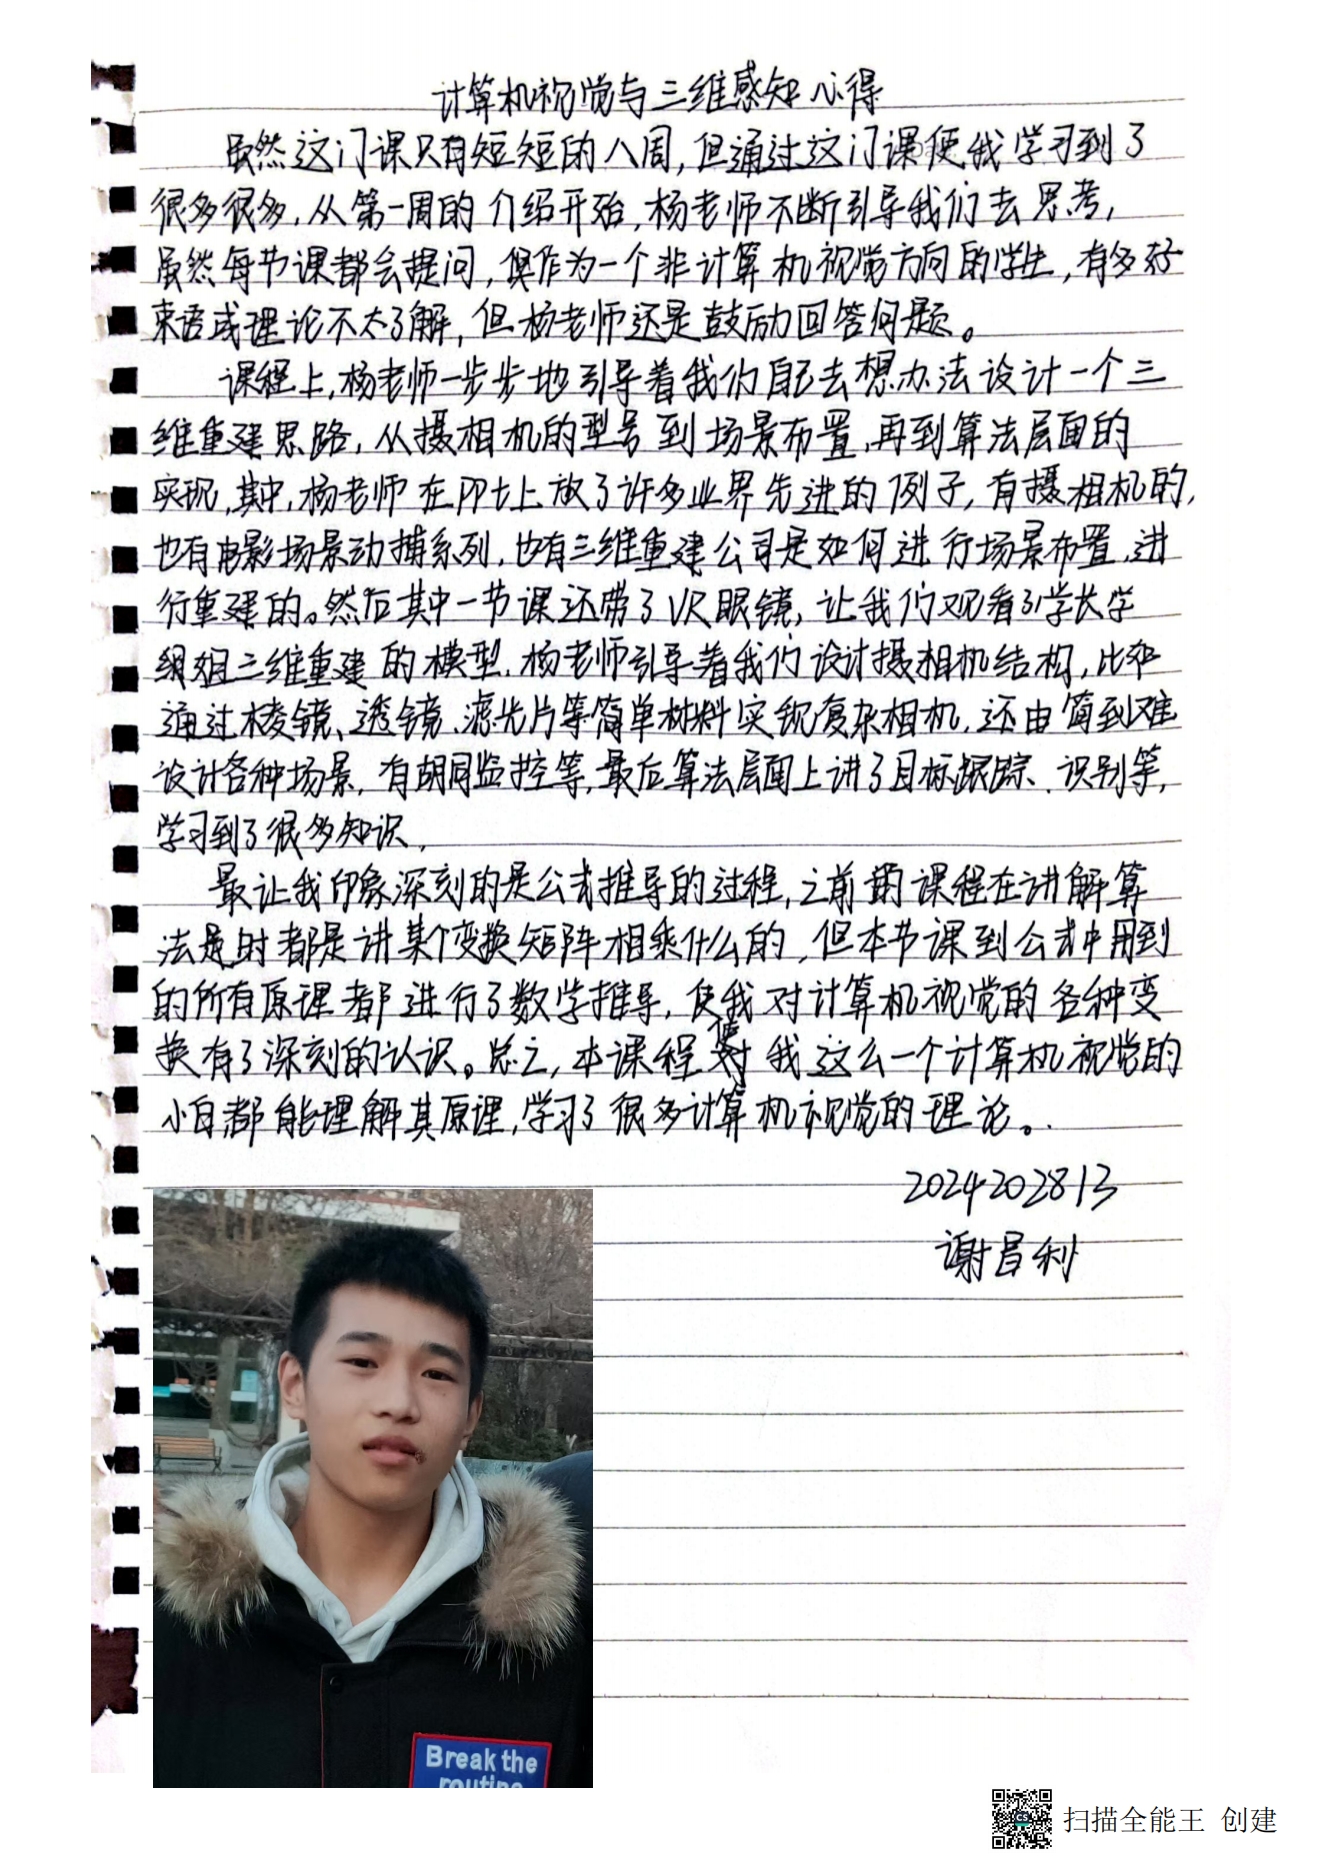 计算机视觉与三维感知心得
虽然这门课只有短短的八周，但通过这门课使我学习到了
很多很多，从第一周的介绍开始，杨老师不断引导我们去思考，
虽然每节课都会提问，但作为一个非计算机视觉方向的学生，有多好
术语或理论不太了解，但杨老师还是鼓励回答问题。
课程上，杨老师一步步地引导着我们自己去想办法设计一个三
维重建思路，从摄相机的型号到场景布置，再到算法层面的
实现，其中，杨老师在PPt上放了许多业界先进的例子，有摄相机的，
也有电影场景动捕系列，也有三维重建公司是如何进行场景布置，进
行重建的。然后其中一节课还带了VR眼镜，让我们观看了学长学
姐三维重建的模型，杨老师引导着我们设计摄相机结构，比如
通过棱镜、透镜、滤光片等简单材料实现复杂相机，还由简到难
设计各种场景，有胡同监控等，最后算法层面上讲了目标跟踪、识别等，
学习到了很多知识。
最让我印象深刻的是公式推导的过程，之前的课程在讲解算
法是时都是讲某个变换矩阵相乘什么的，但本节课到公式中用到
的所有原理都进行了数学推导，使我对计算机视觉的各种变
换有了深刻的认识。总之，本课程使我这么一个计算机视觉的
小白都能理解其原理，学习了很多计算机视觉的理论。
2024202813
谢昌利
Break the
routine
扫描全能王 创建